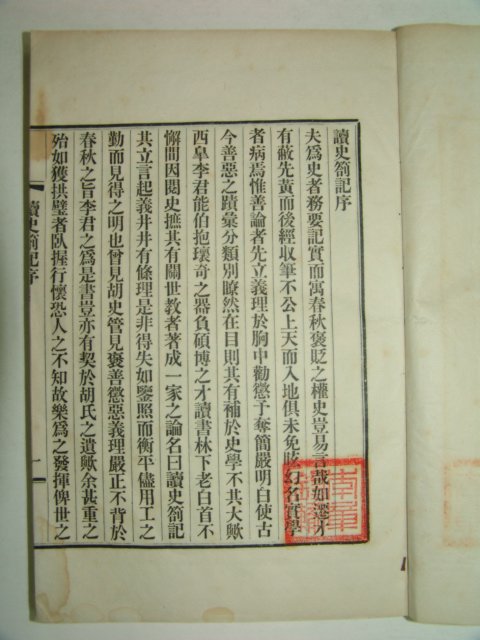 讀史箚記序
夫爲史者務要記實而寓春秋褒貶之權史豈易言哉如遷才
有蔽先黃而後經收筆不公上天而入地俱未免眩幻名實學
者病焉惟善論者先立義理於胸中勸懲予奪簡嚴明白使古
今善惡之蹟彙分類別瞭然在目則其有補於史學不其大歟
西臯李君能伯抱瓌奇之器負碩博之才讀書林下老白首不
懈間因閱史摭其有關世教者著成一家之論名曰讀史箚記
其立言起義井井有條理是非得失如鑒照而衡平儘用工之
勤而見得之明也曾見胡史管見褒善懲惡義理嚴正不背於
春秋之旨李君之爲是書豈亦有契於胡氏之遺歟余甚重之
殆如獲拱璧者臥握行懷恐人之不知故樂爲之發揮俾世之
讀史箚記序
一